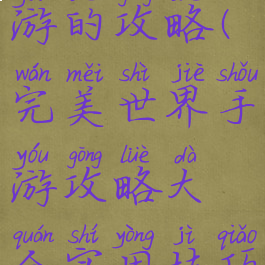 游的攻略(
wán měi shì jiè shǒu
完美世界手
yóu gōng lüè dà
游攻略大
quán shí yòng jì qiǎo
全实用技巧